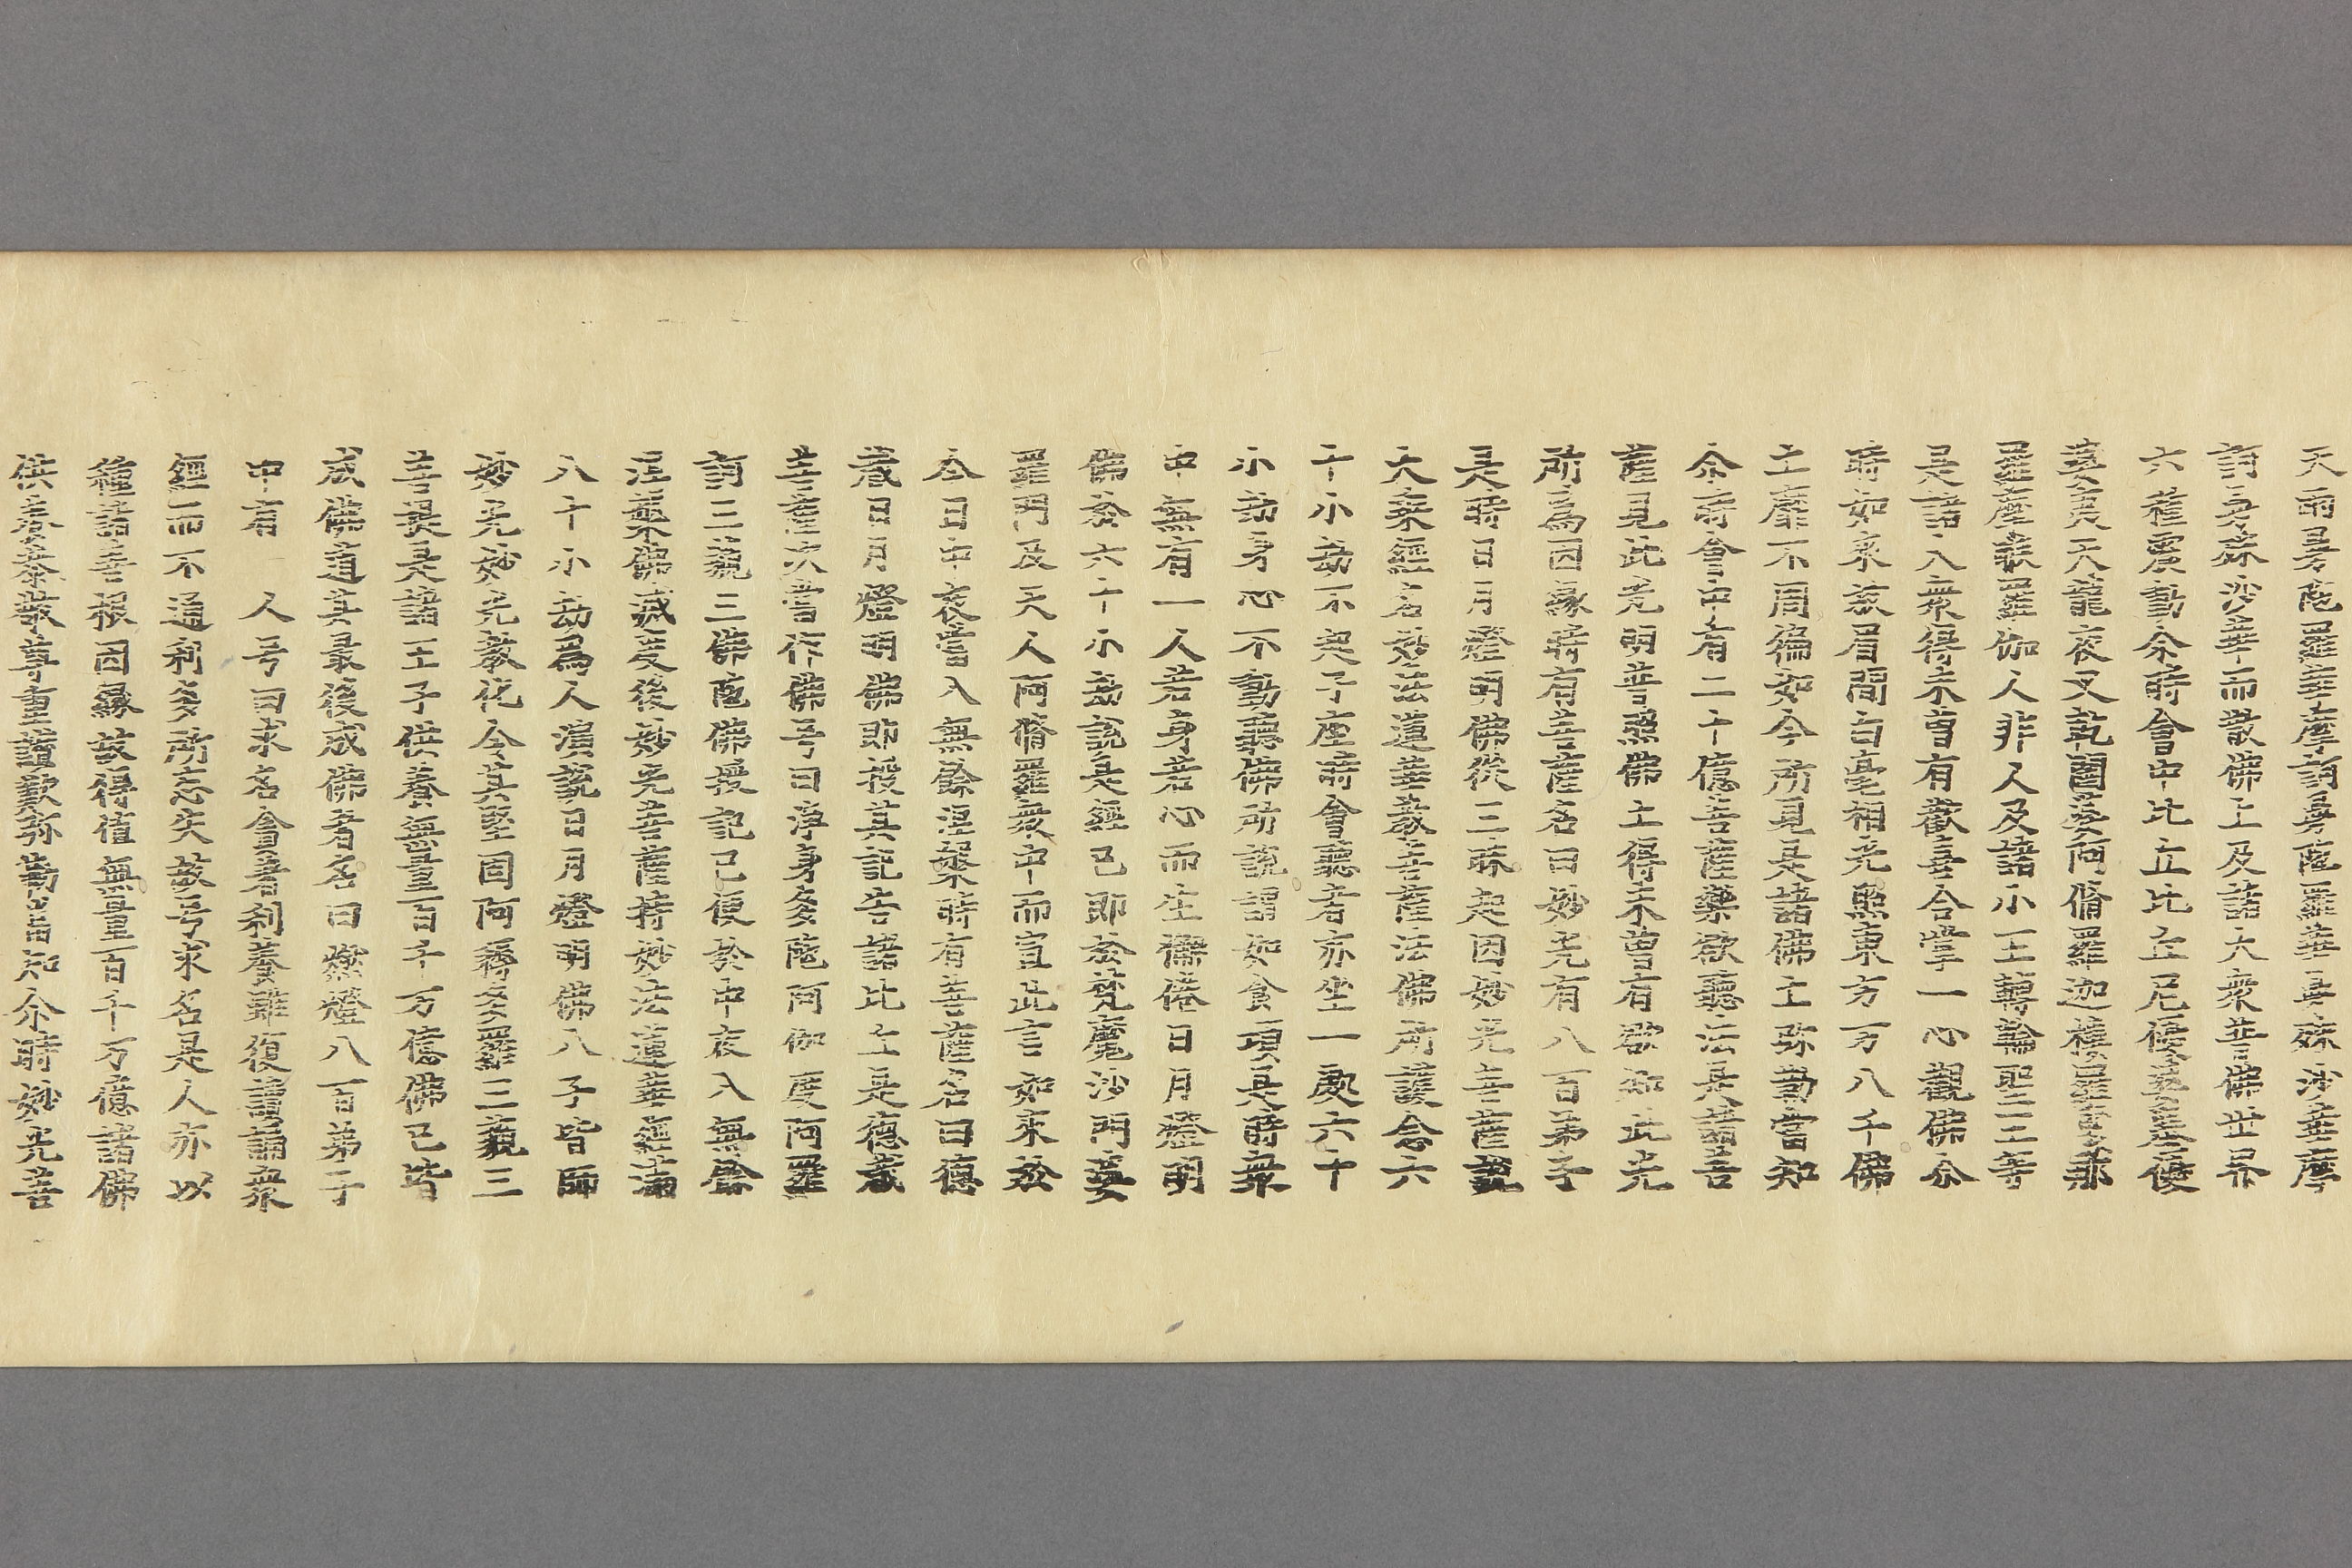 天雨曼陀羅華摩訶曼陀羅華曼殊沙華摩
訶曼殊沙華而散佛上及諸大衆普佛世界
六種震動尒時會中比丘比丘尼優婆塞優
婆夷天龍夜叉乾闥婆阿脩羅迦樓羅緊那
羅摩睺羅伽人非人及諸小王轉輪聖王等
是諸大衆得未曾有歡喜合掌一心觀佛尒
時如來放眉間白毫相光照東方万八千佛
土靡不周徧如今所見是諸佛土弥勒當知
尒時會中有二十億菩薩樂欲聽法是諸菩
薩見此光明普照佛土得未曾有欲知此光
所爲因縁時有菩薩名曰妙光有八百弟子
是時日月燈明佛從三昧起因妙光菩薩說
大乘經名妙法蓮華教菩薩法佛所護念六
十小劫不起于座時會聽者亦坐一處六十
小劫身心不動聽佛所說謂如食頃是時衆
中無有一人若身若心而生懈惓日月燈明
佛於六十小劫說是經已即於梵魔沙門婆
羅門及天人阿脩羅衆中而宣此言如來於
今日中夜當入無餘涅槃時有菩薩名曰德
藏日月燈明佛即授其記告諸比丘是德藏
菩薩次當作佛号曰淨身多陀阿伽度阿羅
訶三藐三佛陀佛授記已便於中夜入無餘
涅槃佛滅度後妙光菩薩持妙法蓮華經滿
八十小劫爲人演說日月燈明佛八子皆師
妙光妙光教化令其堅固阿耨多羅三藐三
菩提是諸王子供養無量百千万億佛已皆
成佛道其最後成佛者名曰燃燈八百弟子
中有一人号曰求名貪著利養雖復讀誦衆
經而不通利多所忘失故号求名是人亦以
種諸善根因縁故得值無量百千万億諸佛
供養恭敬尊重讚歎弥勒當知尒時妙光菩